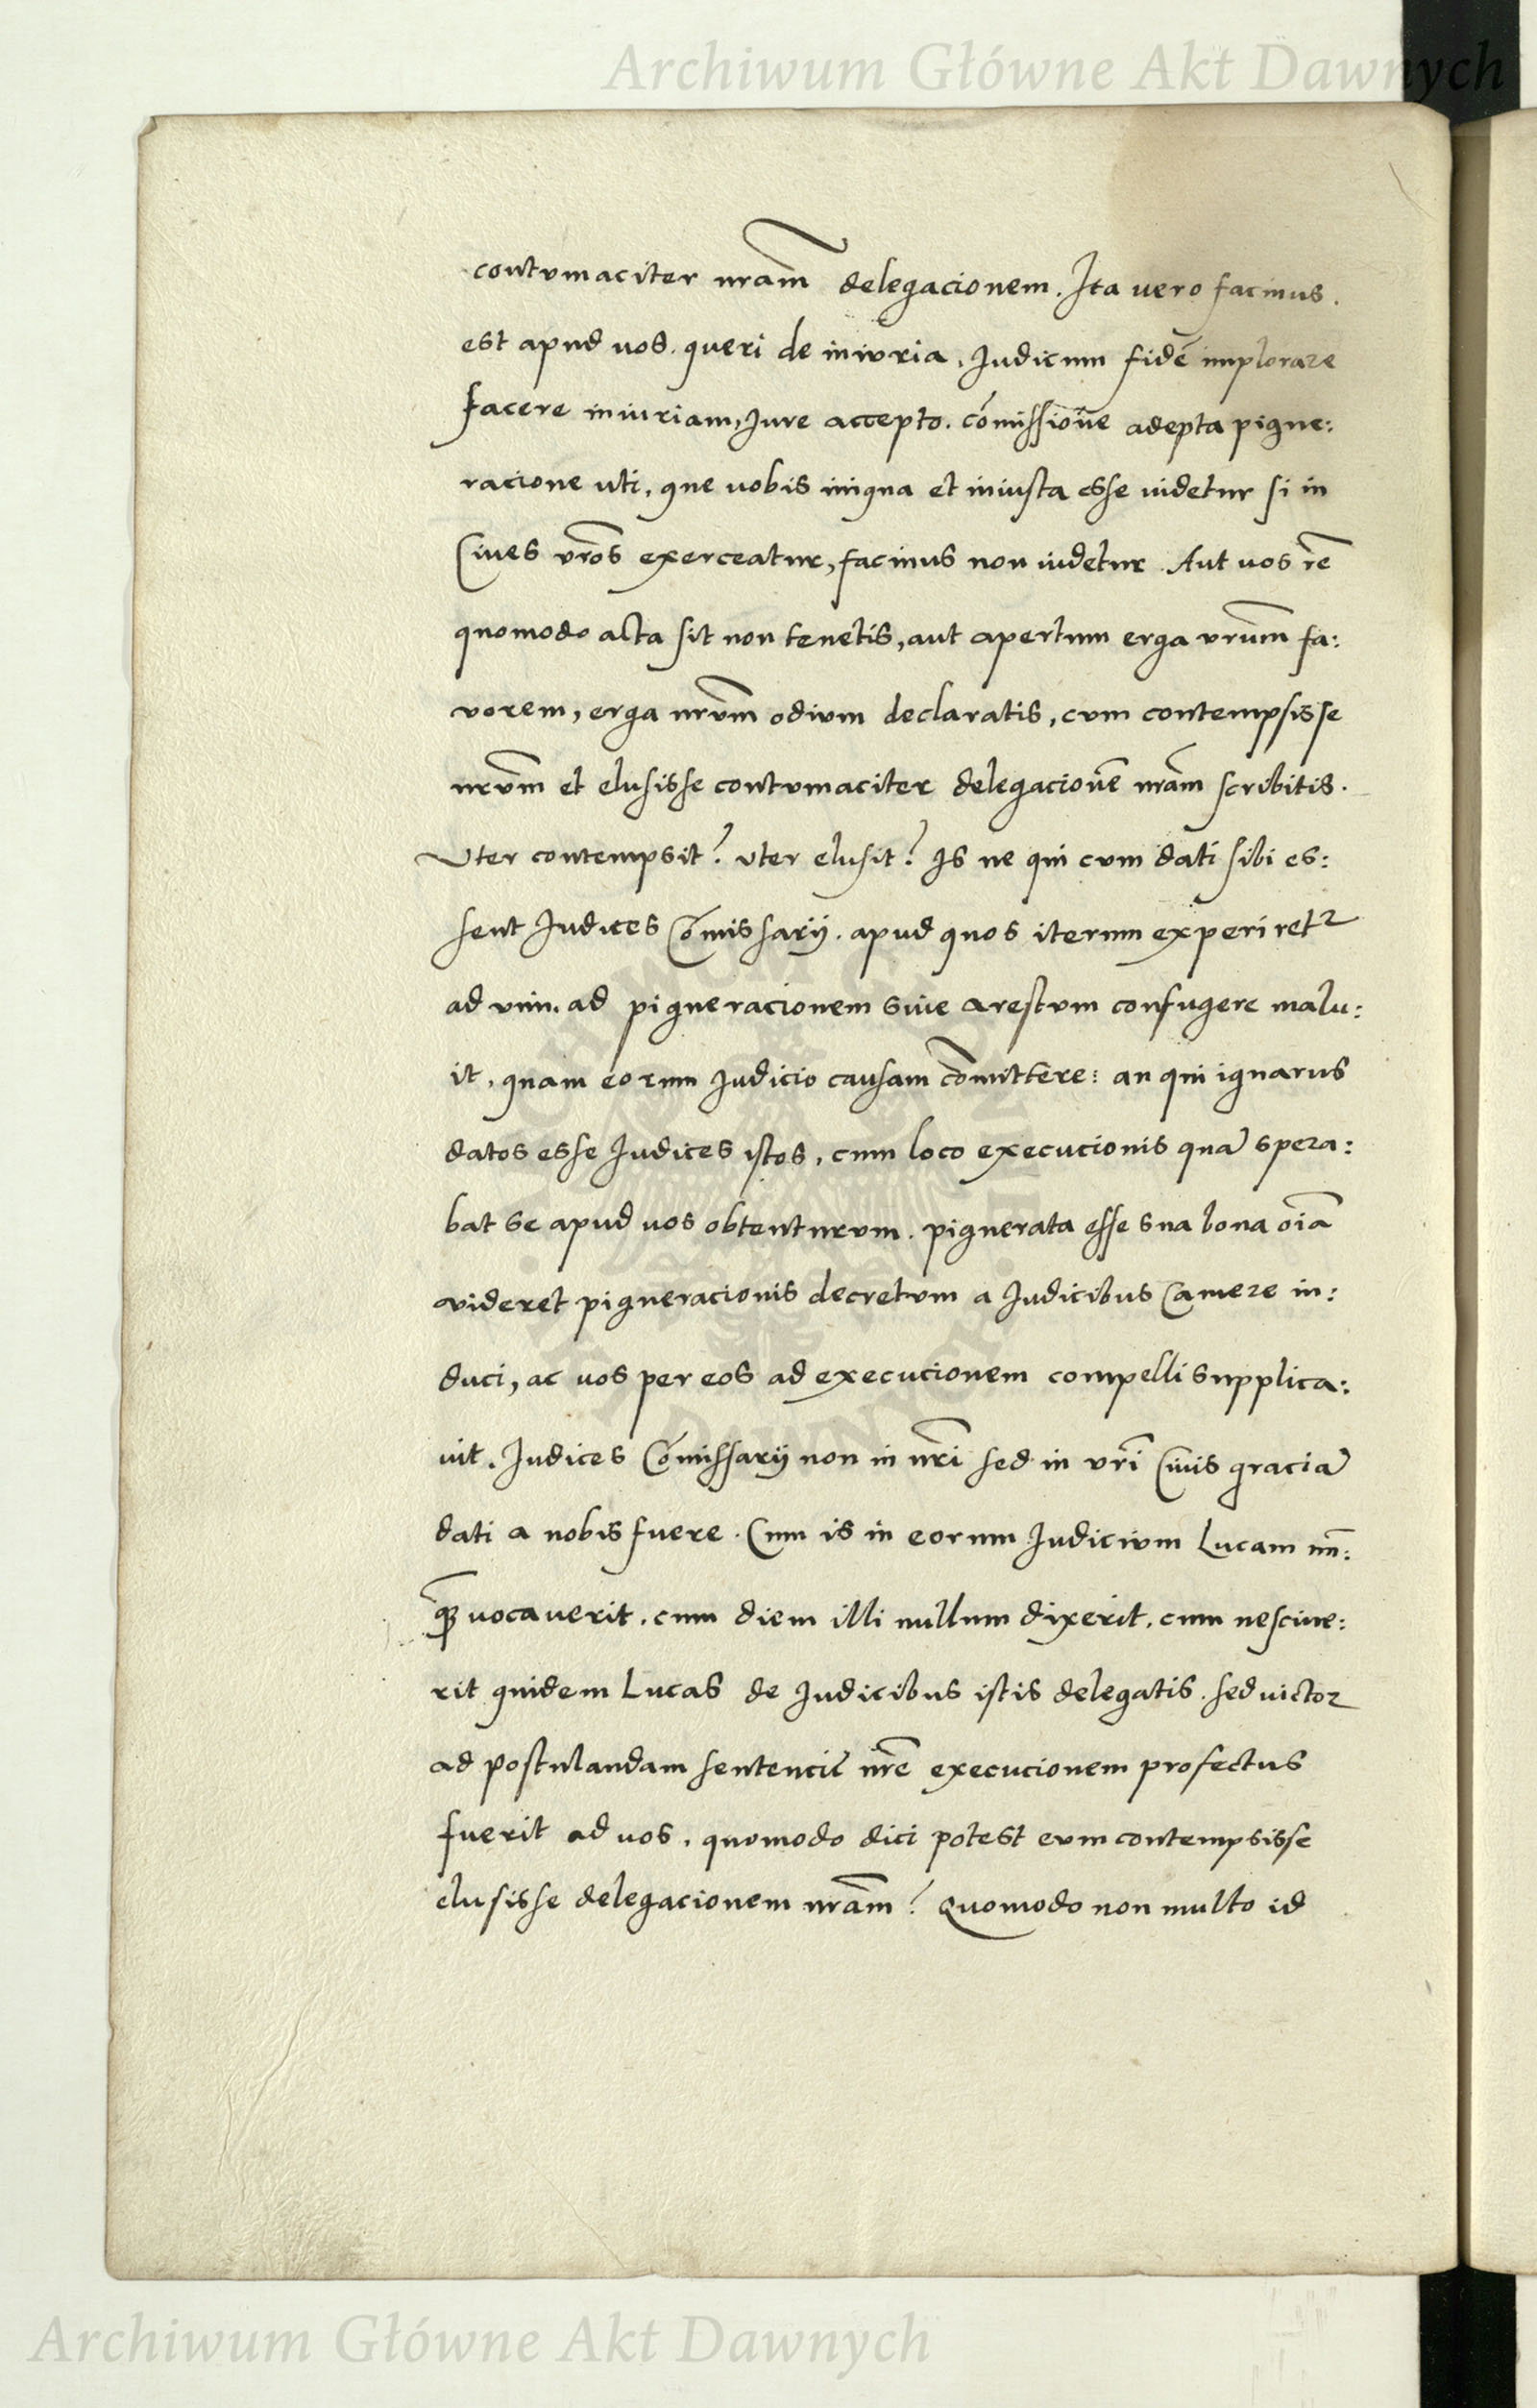 Archiwum Główne Akt Dawnych
contvmaciter nrãm delegacionem. Ita vero facinus.
est apud uos. queri de iniuria. Iudicum fidẽ implorare
facere iniuriam, Iure accepto. cõmissiõne adepta pigne:
racione uti. que uobis iniqua et iniusta esse uidetur si in
Ciues vrõs exerceatur, facinus non uidetur. Aut uos rẽ
quomodo acta sit non tenetis, aut apertum erga vrũm fa:
vorem, erga nrũm odivm declaratis, cvm contempsisse
nrũm et elusisse contvmaciter delegacionẽ nrãm scribitis.
Vter contempsit? vter elusit? Is ne qui cvm dati sibi es:
sent Iudices Cõmissarij. apud quos iterum experiretr
ad vim. ad pigneracionem siue arestvm confugere malu:
it, quam eorum Iudicio causam cõmittere: an qui ignarus
datos esse Iudices istos, cum loco execucionis quã spera:
bat se apud uos obtenturvm. pignerata esse sua bona oĩa
videret pigneracionis decretvm a Iudicibus Camere in:
duci, ac uos per eos ad execucionem compelli supplica:
uit. Iudices Cõmissarij non in nrĩ sed in vrĩ Ciuis graciã
dati a nobis fuere. Cum is in eorum Iudicivm Lucam nũ:
qꝫ vocauerit. cum diem illi nullum dixerit. cum nesciue:
rit quidem Lucas de Iudicibus istis delegatis. sed victor
ad postulandam sentencie nrẽ execucionem profectus
fuerit ad uos. quomodo dici potest evm contempsisse
elusisse delegacionem nrãm? Quomodo non multo id
Archiwum Główne Akt Dawnych